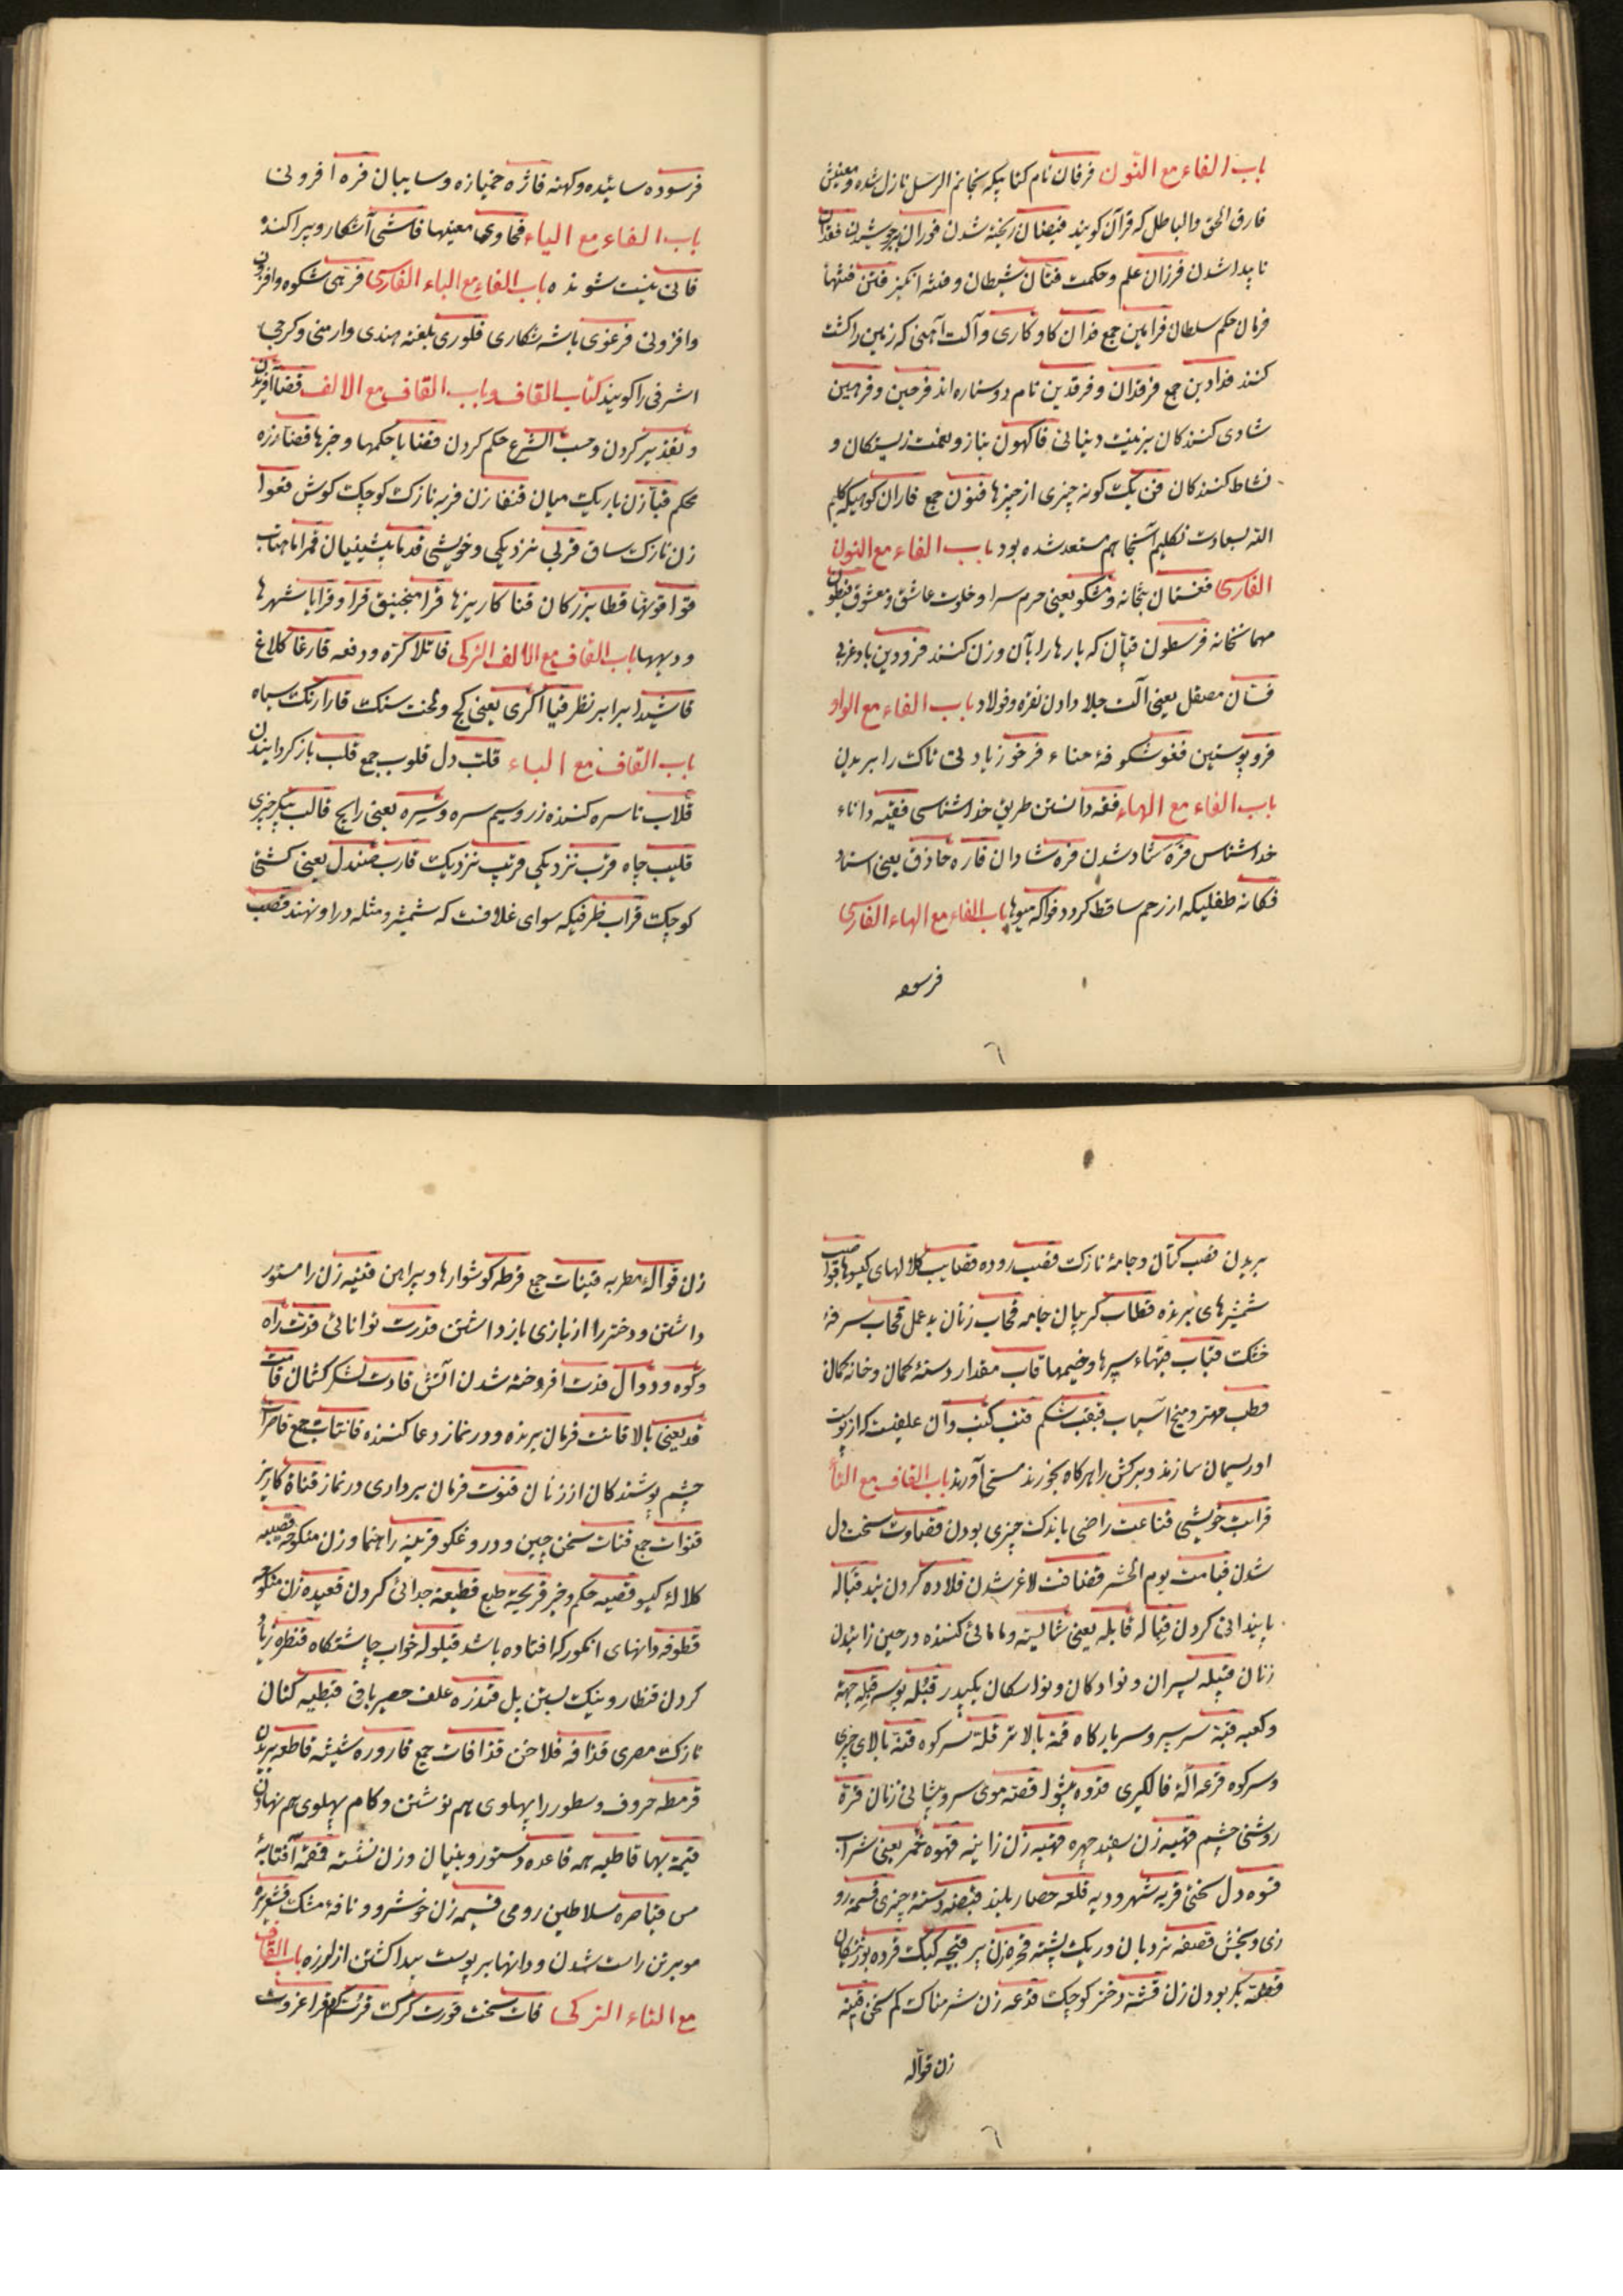 باب الفاء مع النون فرقان نام کتابیکه بخاتم الرسل نازل شده و معنیش
فارق الحق والباطل که قرآن کویند فیضان ریخته شدن فوران برجوشیدن فقدان
ناپیدا شدن فرزان علم و حکمت فتّان شیطان و فتنه انکیز فتن فتنها
فرمان حکم سلطان فرامین جمع فدان کاو کاری و آلت آهنی که زمین را کشت
کنند فدادین جمع فرقدان و فرقدین نام دو ستاره اند فرحین و فرهین
شادی کنندکان بزینت دنیائی فاکهون بناز و نعمت زیستکان و
نشاط کنندکان فن یک کونه چیزی از چیزها فنون جمع فاران کوهیکه کلیم
الله بسعادت تکلیم آنجا هم مستعد شده بود باب الفاء مع النون
الفارسی فغستان بتخانه و مشکو یعنی حرم سرا و خلوت عاشق و معشوق فیطون
مهمانخانه فرسطون قپان که بارها را بآن وزن کنند فرودین باد غربی
فسان مصقل یعنی آلت جلا دادن نقره و فولاد باب الفاء مع الواو
فرو پوستین فغو شکوفهٔ حناء فرخو زیادتی تاک را بریدن
باب الفاء مع الهاء فقه دانستن طریق خداشناسی فقیه داناء
خداشناس فره شاد شدن فره شادان فاره حاذق یعنی استاد
فکانه طفلیکه از رحم ساقط کردد فواکه میوها باب الفاء مع الهاء الفارسی
فرسوده
فرسوده سائیده و کهنه فاژه خمیازه و سایبان فره افزونی
باب الفاء مع الیاء فحاوی معنیها فاشی آشکار و پراکنده
فانی نیست شونده باب الفاء مع الیاء الفارسی فرّهی شکوه و افزون
وافزونی فرغوی باشه شکاری فلوری بلغته هندی و ارمنی و کرجی
اشرفی را کویند کتاب القاف و باب القاف مع الالف قضا آفریدن
و تقدیر کردن و حسب الشرع حکم کردن قضایا حکمها و خبرها قضاء زره
محکم قباء زن باریک میان قنفا زن فربه نازک کوچک کوش قعوا
زن نازک ساق قربی نزدیکی و خویشی قدما پیشینیان قمرا ماهتاب
قوا قوتها قطا بزرکان قنا کاریزها قرا منجنیق قرا و قرایا شهرها
و دیهها باب القاف مع الالف الترکی قاتلا کرّه و دفعه قارغا کلاغ
قاشیدا برابر نظر قیا اکری یعنی کج و لخت سنک قارا رنک سیاه
باب القاف مع الباء قلب دل قلوب جمع قلب بازکردانیدن
قلاب ناسره کننده زر و سیم سره و سیره یعنی رایج قالب پیکر چیزی
قلیب چاه قرب نزدیکی قریب نزدیک قارب صندل یعنی کشتی
کوچک قراب ظرفیکه سوای غلافست که شمشیر و مثله در او نهند قصب
بریدن قصب کتان و جامهٔ نازک قصب روده قصایب کلالهای کیسوها قواضب
شمشیرهای برنده قطاب کریبان جامه قحاب زنان بدعمل قحاب سرفهٔ
خشک قباب قبهاء سپرها و خیمها قاب مقدار دستهٔ کمان و خانه کمان
قطب مهتر و میخ آسیاب قبقب شکم قنب کنب و آن علفیست که از پوست
او ریسمان سازند و برکش را هرکاه بخورند مستی آورند باب القاف مع التاء
قرابت خویشی قناعت راضی باندک چیزی بودن قساوت سخت دل
شدن قیامت یوم الحشر قضافت لاغر شدن قلاده کردن بند قباله
پابندانی کردن قباله قابله یعنی شایسته و مامائی کننده در حین زائیدن
زنان قبیله پسران و نوادکان و نواسکان یکپدر قبله بوسه قبله جهة
و کعبه قبة سر سپر و سر بارکاه قمة بالاتر قلة سر کوه قنة بالای چیزی
و سر کوه قرعه آلهٔ فالکیری قدوه پیشوا قصه موی سر و پیشانی زنان قرة
روشنی چشم قهبه زن سفید چهره قحبه زن زانیه قهوه خمر یعنی شراب
قسوه دل سختی قریه شهر و دیه قلعه حصار بلند قبضه دستهٔ چیزی قسمه رو
زی و بخش قصفه نردبان و ریک پشته قحره زن پیر قبجه کبک قرده بوزنکان
زن قوّاله
زن قوّاله مطربه قینات جمع قرطه کوشوارها و پیراهن قنیه زن را مستور
داشتن و دختر را از بازی باز داشتن قدرت توانائی قدت راه
و کوه و دوال قدت افروخته شدن آتش قادت لشکر کشان قامت
قد یعنی بالا قانت فرمان برنده و در نماز دعا کننده قانتات جمع قاصرات
چشم پوشندکان از زنان قنوت فرمان برداری در نماز قناة کاریز
قنوات جمع قتات سخن چین و دروغکو قرینه راهنما و زن منکوحه قصیبه
کلالهٔ کیسو قضیه حکم و خبر قریحة طبع قطیعة جدائی کردن قعیده زن منکوحه
قطوفه دانهای انکور که افتاده باشد قیلوله خواب چاشتکاه قنطره ربا
کردن قنطار و نیک بستن پل قندره علف حصیر بافی قبطیه کتان
نازک مصری قذافه فلاخن قذافات جمع قاروره شیشه قاطعه بریدن
قرمطه حروف و سطور را پهلوی هم نوشتن و کام پهلوی هم نهادن
قیمة بها قاطبه همه قاعده دستور و بنیان و زن نشسته قمقمه آفتابهٔ
مس قیاصره سلاطین رومی قسیمه زن خوشرو و نافهٔ مشک قشعریره
مو برتن راست شدن و دانها بر پوست پیدا کشتن از لرزه باب القاف
مع التاء الترکی قات سخت قورت کرک قراغ زوت